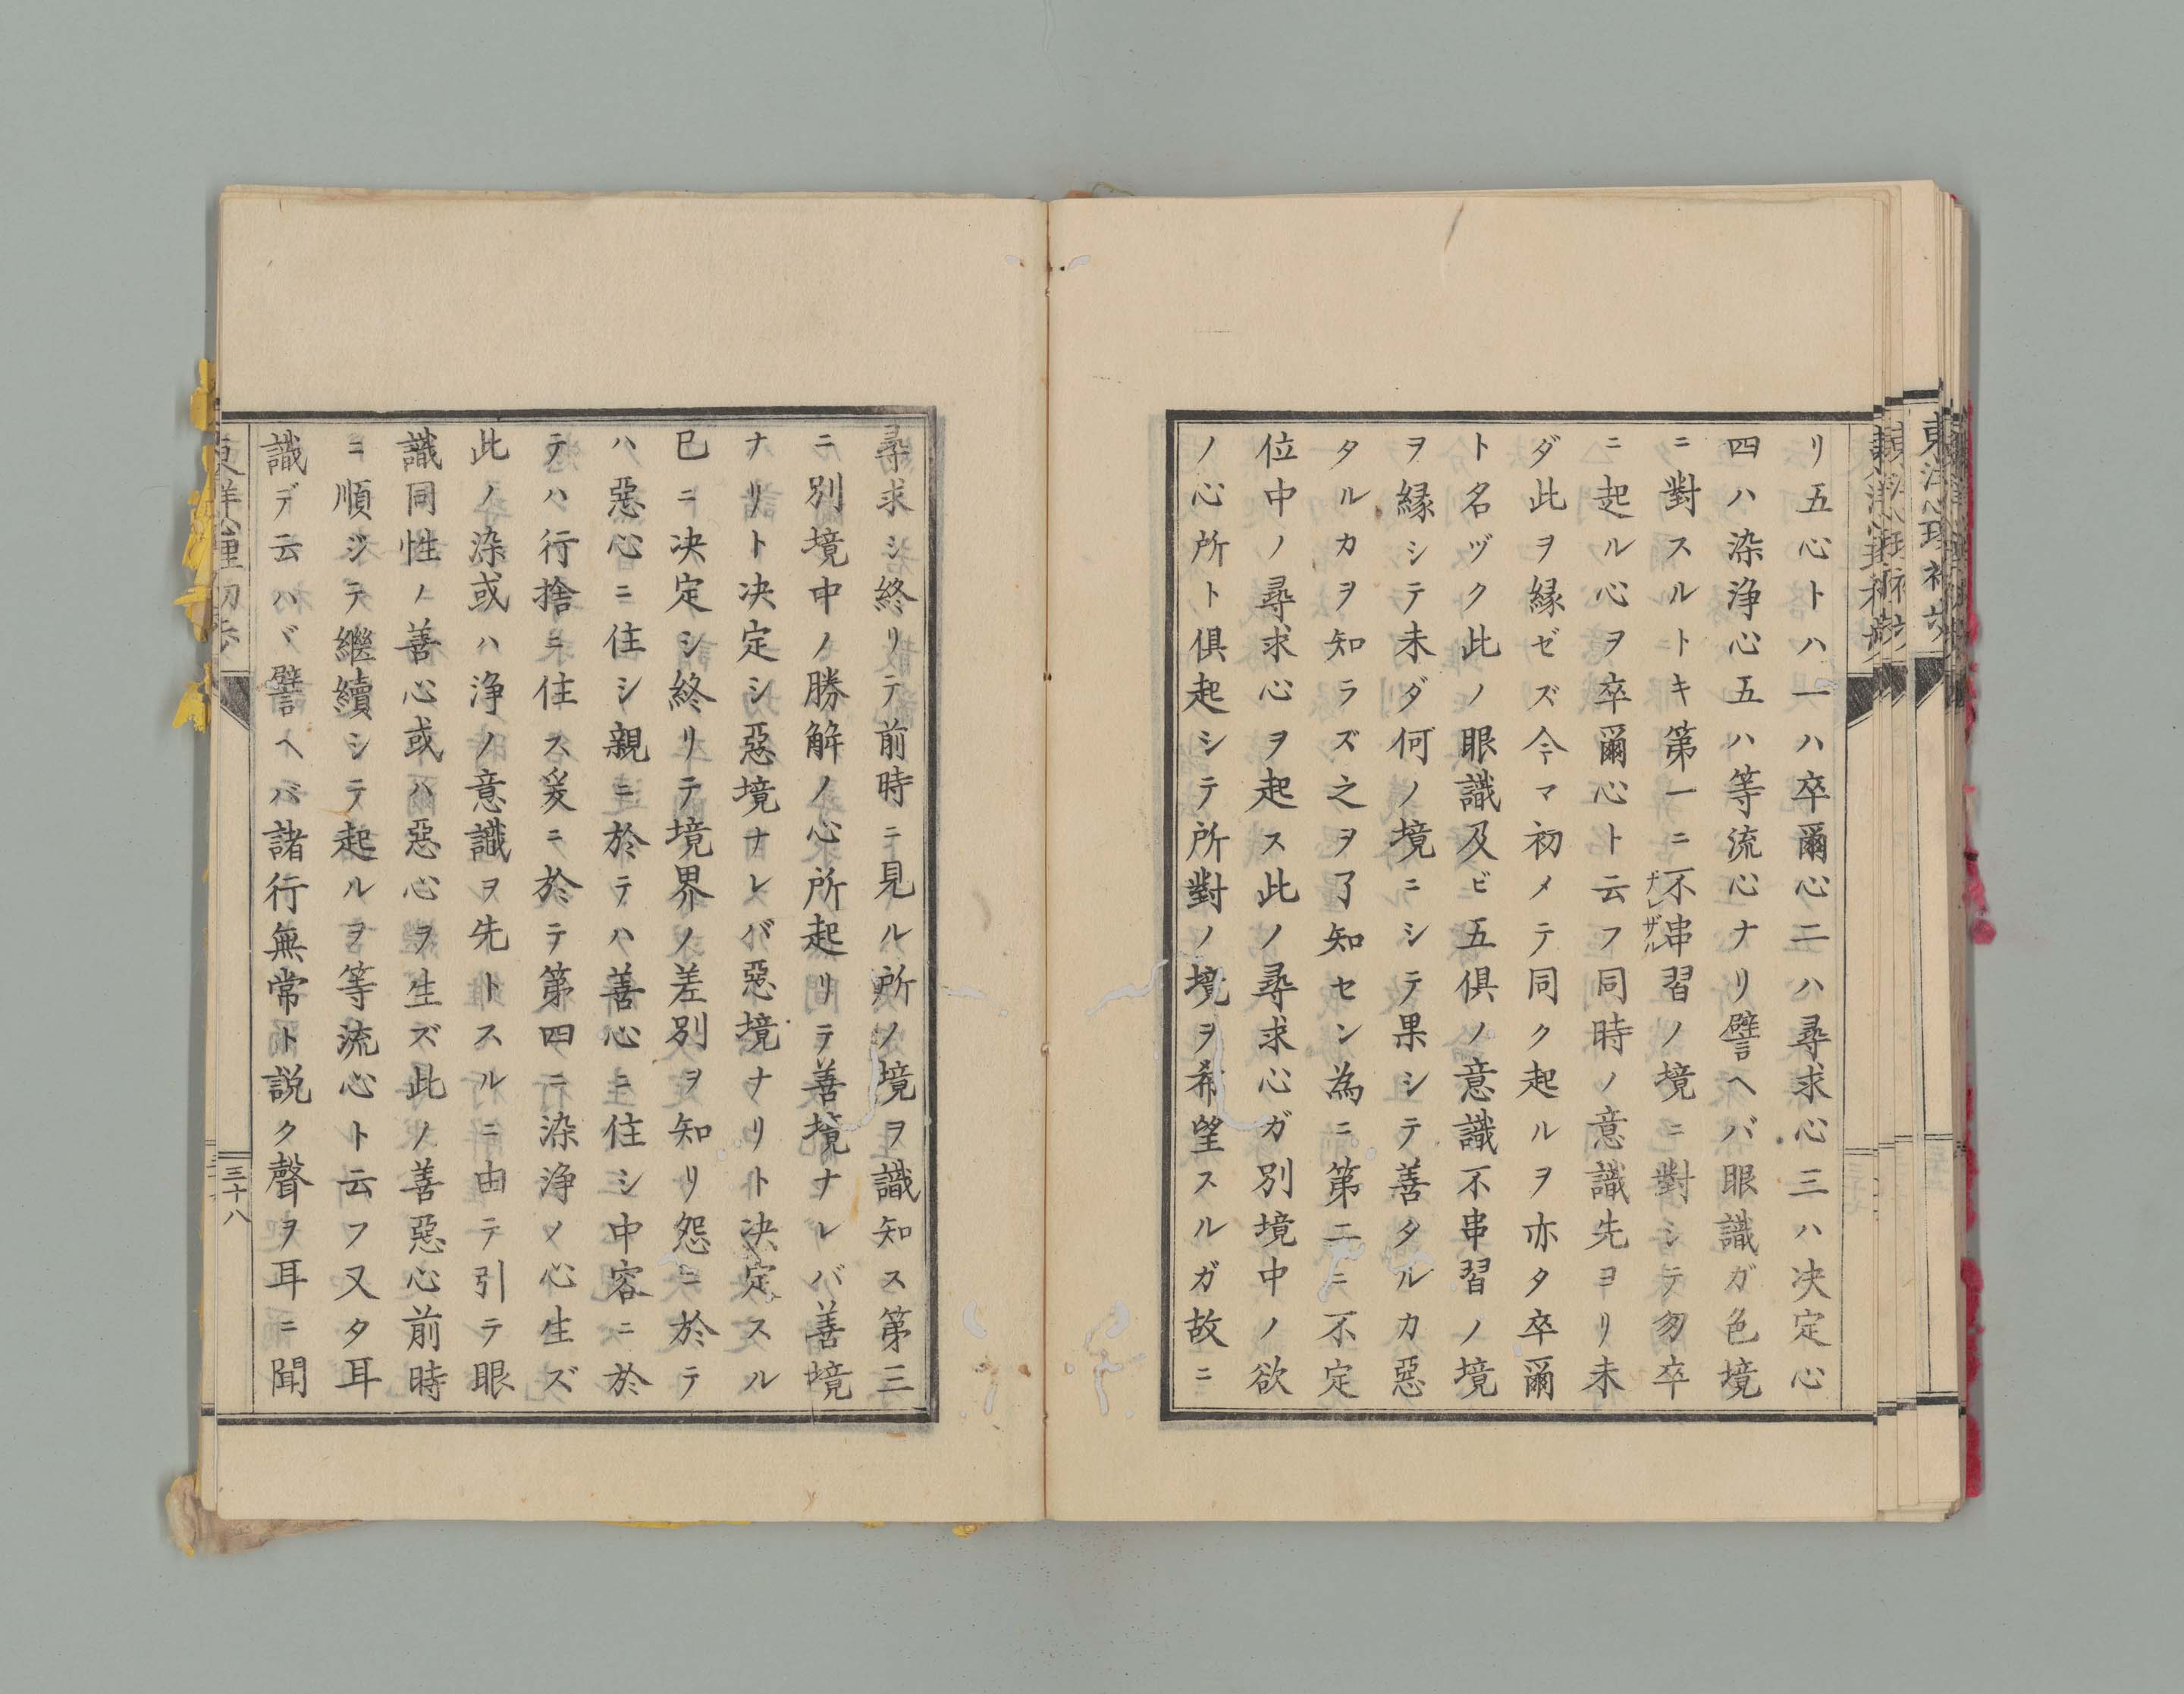 リ五心トハ一ハ卒爾心二ハ尋求心三ハ决定心
四ハ染浄心五ハ等流心ナリ譬ヘバ眼識ガ色境
ニ對スルトキ第一ニ不串習ノ境ニ對シテ勿卒
ナレザル
ニ起ル心ヲ卒爾心ト云フ同時ノ意識先ヨリ未
ダ此ヲ縁ゼズ今マ初メテ同ク起ルヲ亦タ卒爾
ト名ヅク此ノ眼識及ビ五倶ノ意識不串習ノ境
ヲ縁シテ未ダ何ノ境ニシテ果シテ善タルカ惡
タルカヲ知ラズ之ヲ了知セン為ニ第二ニ不定
位中ノ尋求心ヲ起ス此ノ尋求心ガ別境中ノ欲
ノ心所ト倶起シテ所對ノ境ヲ希望スルガ故ニ
尋求シ終リテ前時ニ見ル所ノ境ヲ識知ス第三
ニ別境中ノ勝解ノ心所起リテ善境ナレバ善境
ナリト决定シ惡境ナレバ惡境ナリト决定スル
已ニ决定シ終リテ境界ノ差別ヲ知リ怨ニ於テ
ハ惡心ニ住シ親ニ於テハ善心ニ住シ中容ニ於
テハ行捨ニ住ス爰ニ於テ第四ニ染浄ノ心生ズ
此ノ染或ハ浄ノ意識ヲ先トスルニ由テ引テ眼
識同性ノ善心或ハ惡心ヲ生ズ此ノ善惡心前時
ニ順ジテ継續シテ起ルヲ等流心ト云フ又タ耳
識デ云ハヾ譬ヘバ諸行無常ト説ク聲ヲ耳ニ聞
三十八